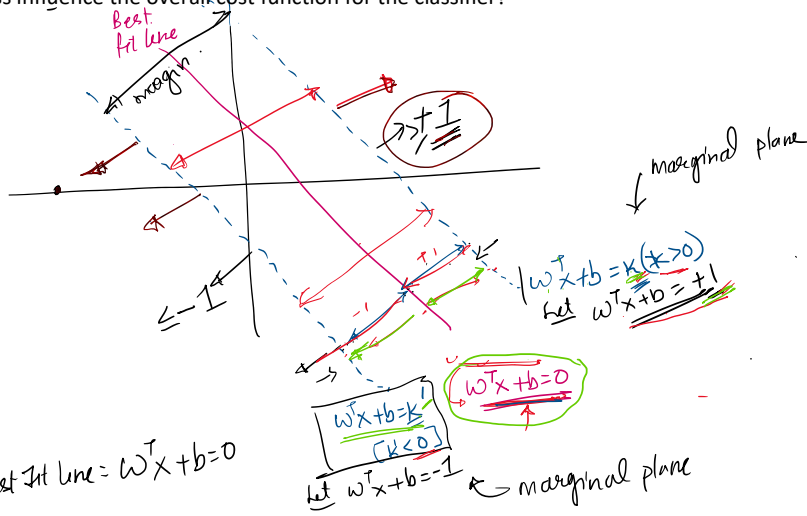 s influence the overall cost function for the classifier?
Best
fit line
margin.
>> +1
marginal plane
wᵀx+b=k(k>0)
Let wᵀx+b=+1
+1
-1
≤-1
wᵀx+b=0
wᵀx+b=k'
[k<0]
Let wᵀx+b=-1
marginal plane
st Fit line = wᵀx+b=0